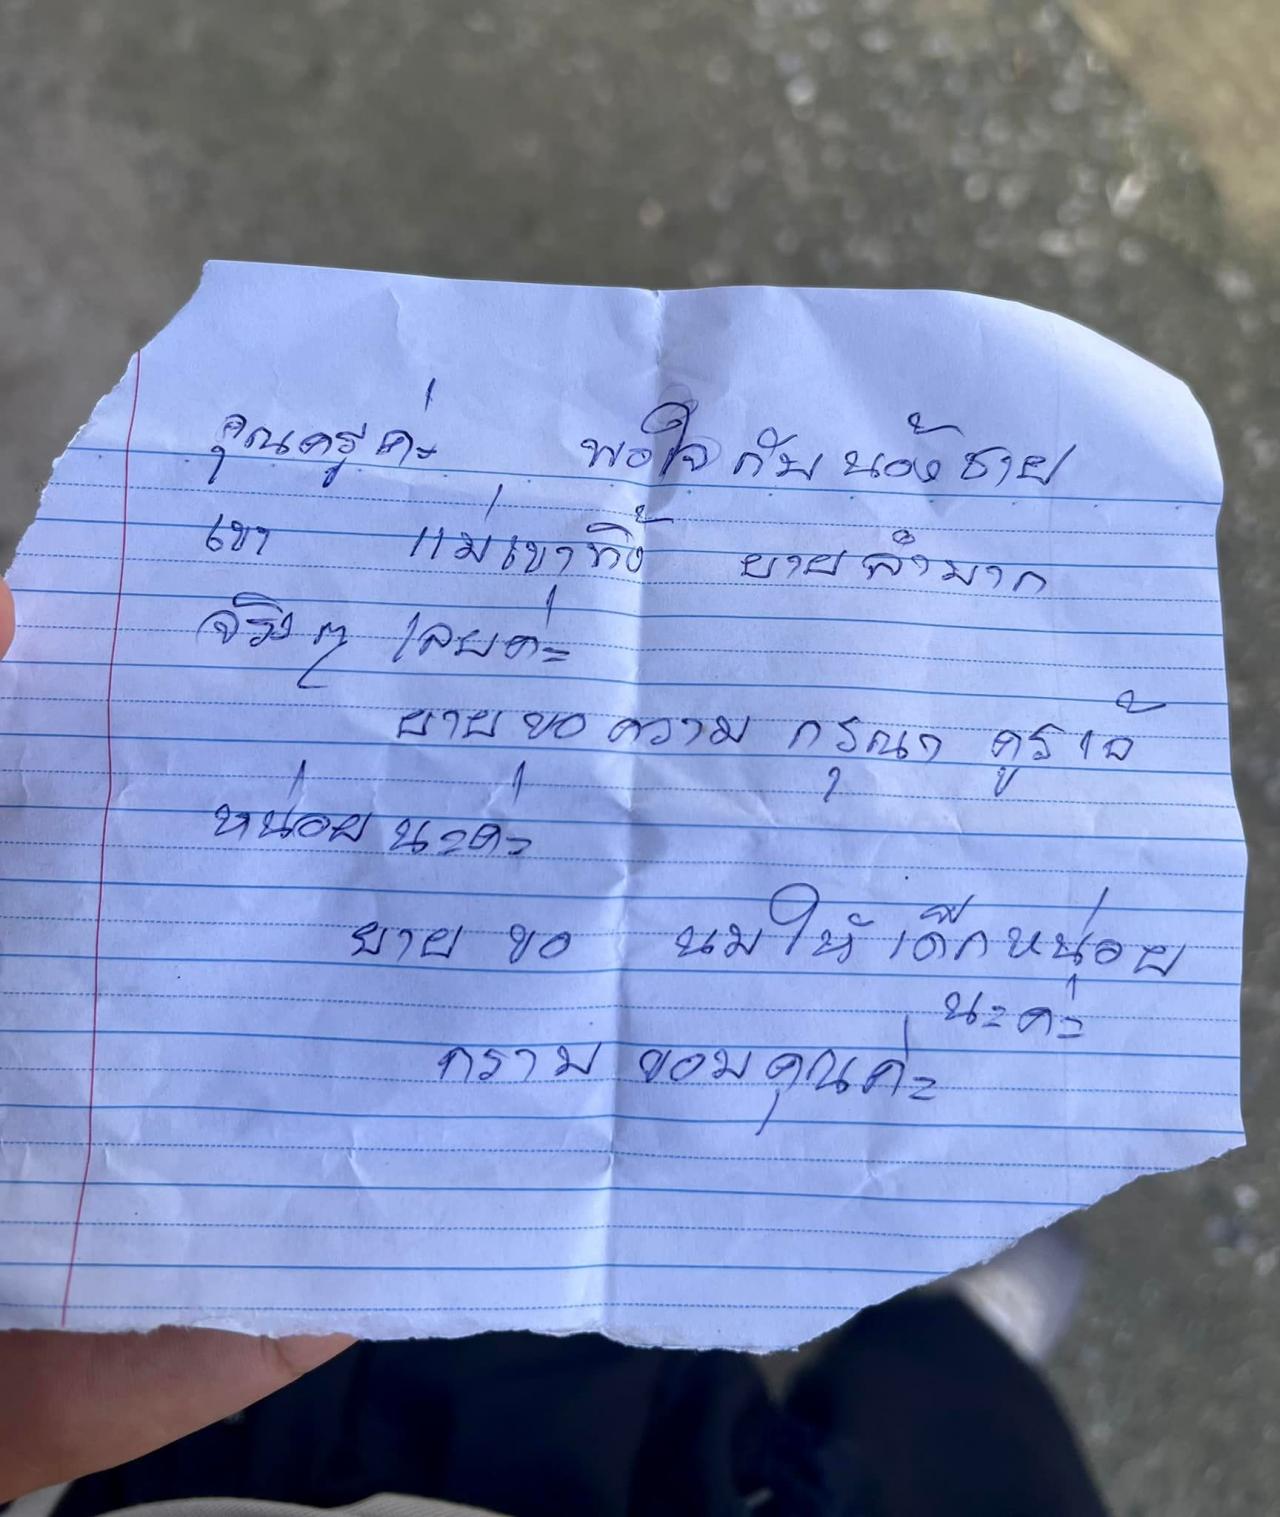 คุณครูค่ะ พอใจ กับ น้อง ชาย
เขา แม่เขาทิ้ง ยายลำมาก
จริงๆ เลยค่ะ
ยาย ขอ ความ กรุณา คูร เจ้
หน่อย นะค่ะ
ยาย ขอ นมให้ เด็กหน่อย
นะค่ะ
กราบ ขอบคุณค่ะ